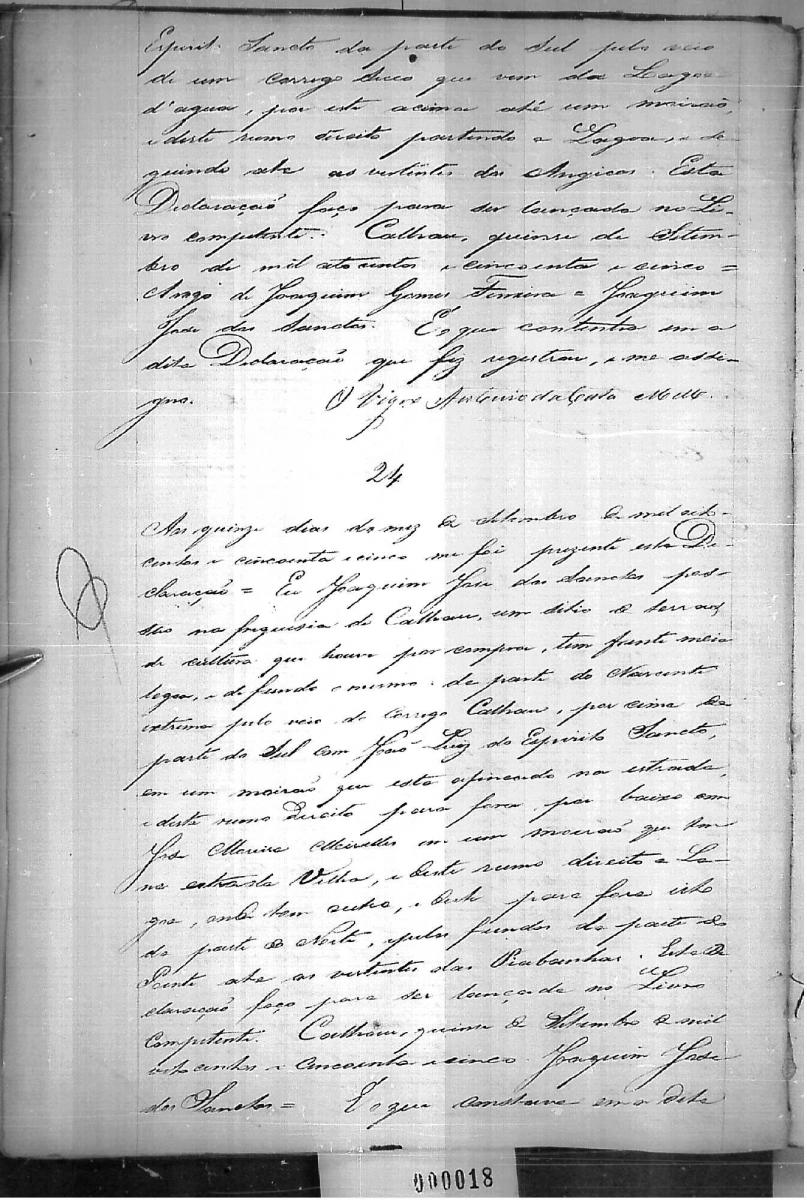 Espirit. Sancto da parte do Sul pelo veio
de um corrego seco que vem da Lagoa
d'agua, por este acima até um moirão,
e deste rumo direito partindo a Lagoa, e se-
guindo até as vertentes dos Angicos. Esta
Declaração faço para ser lançada no Li-
vro competente. Calhau, quinse de Setem-
bro de mil oitocentos e cincoenta e cinco =
Arogo de Joaquim Gomes Ferreira = Joaquim
Jose dos Sanctos. É o que continha em a
dita Declaração que fiz registrar, e me assi-
gno. O Vigro Antonio da Costa Mello.
24
Aos quinze dias do mez de Setembro de mil oit-
centos e cincoenta e cinco me foi prezente esta De-
claração = Eu Joaquim Jose dos Sanctos pos-
suo na freguesia de Calhau, um sitio de terras
de cultura que houve por compra, tem frente meia
legoa, e de fundo o mesmo: da parte do Nascente
extrema pelo veio do Corrego Calhau, por cima da
parte do Sul com João Luiz do Espirito Sancto,
em um moirão que esta afincado na estrada,
e deste rumo direito para fora, por baixo com
Jose Moreira Meirelles em um moirão que tem
na estrada Velha, e deste rumo direito a La-
goa, onde tem outro, e deste para fora isto
da parte do Norte, e pelos fundos da parte do
Poente até as vertentes das Piabanhas. Esta De
claração faço para ser lançada no Livro
Competente. Calhau, quinse de Setembro de mil
oitocentos e cincoenta e cinco. Joaquim Jose
dos Sanctos = É o que constava em a dita
000018